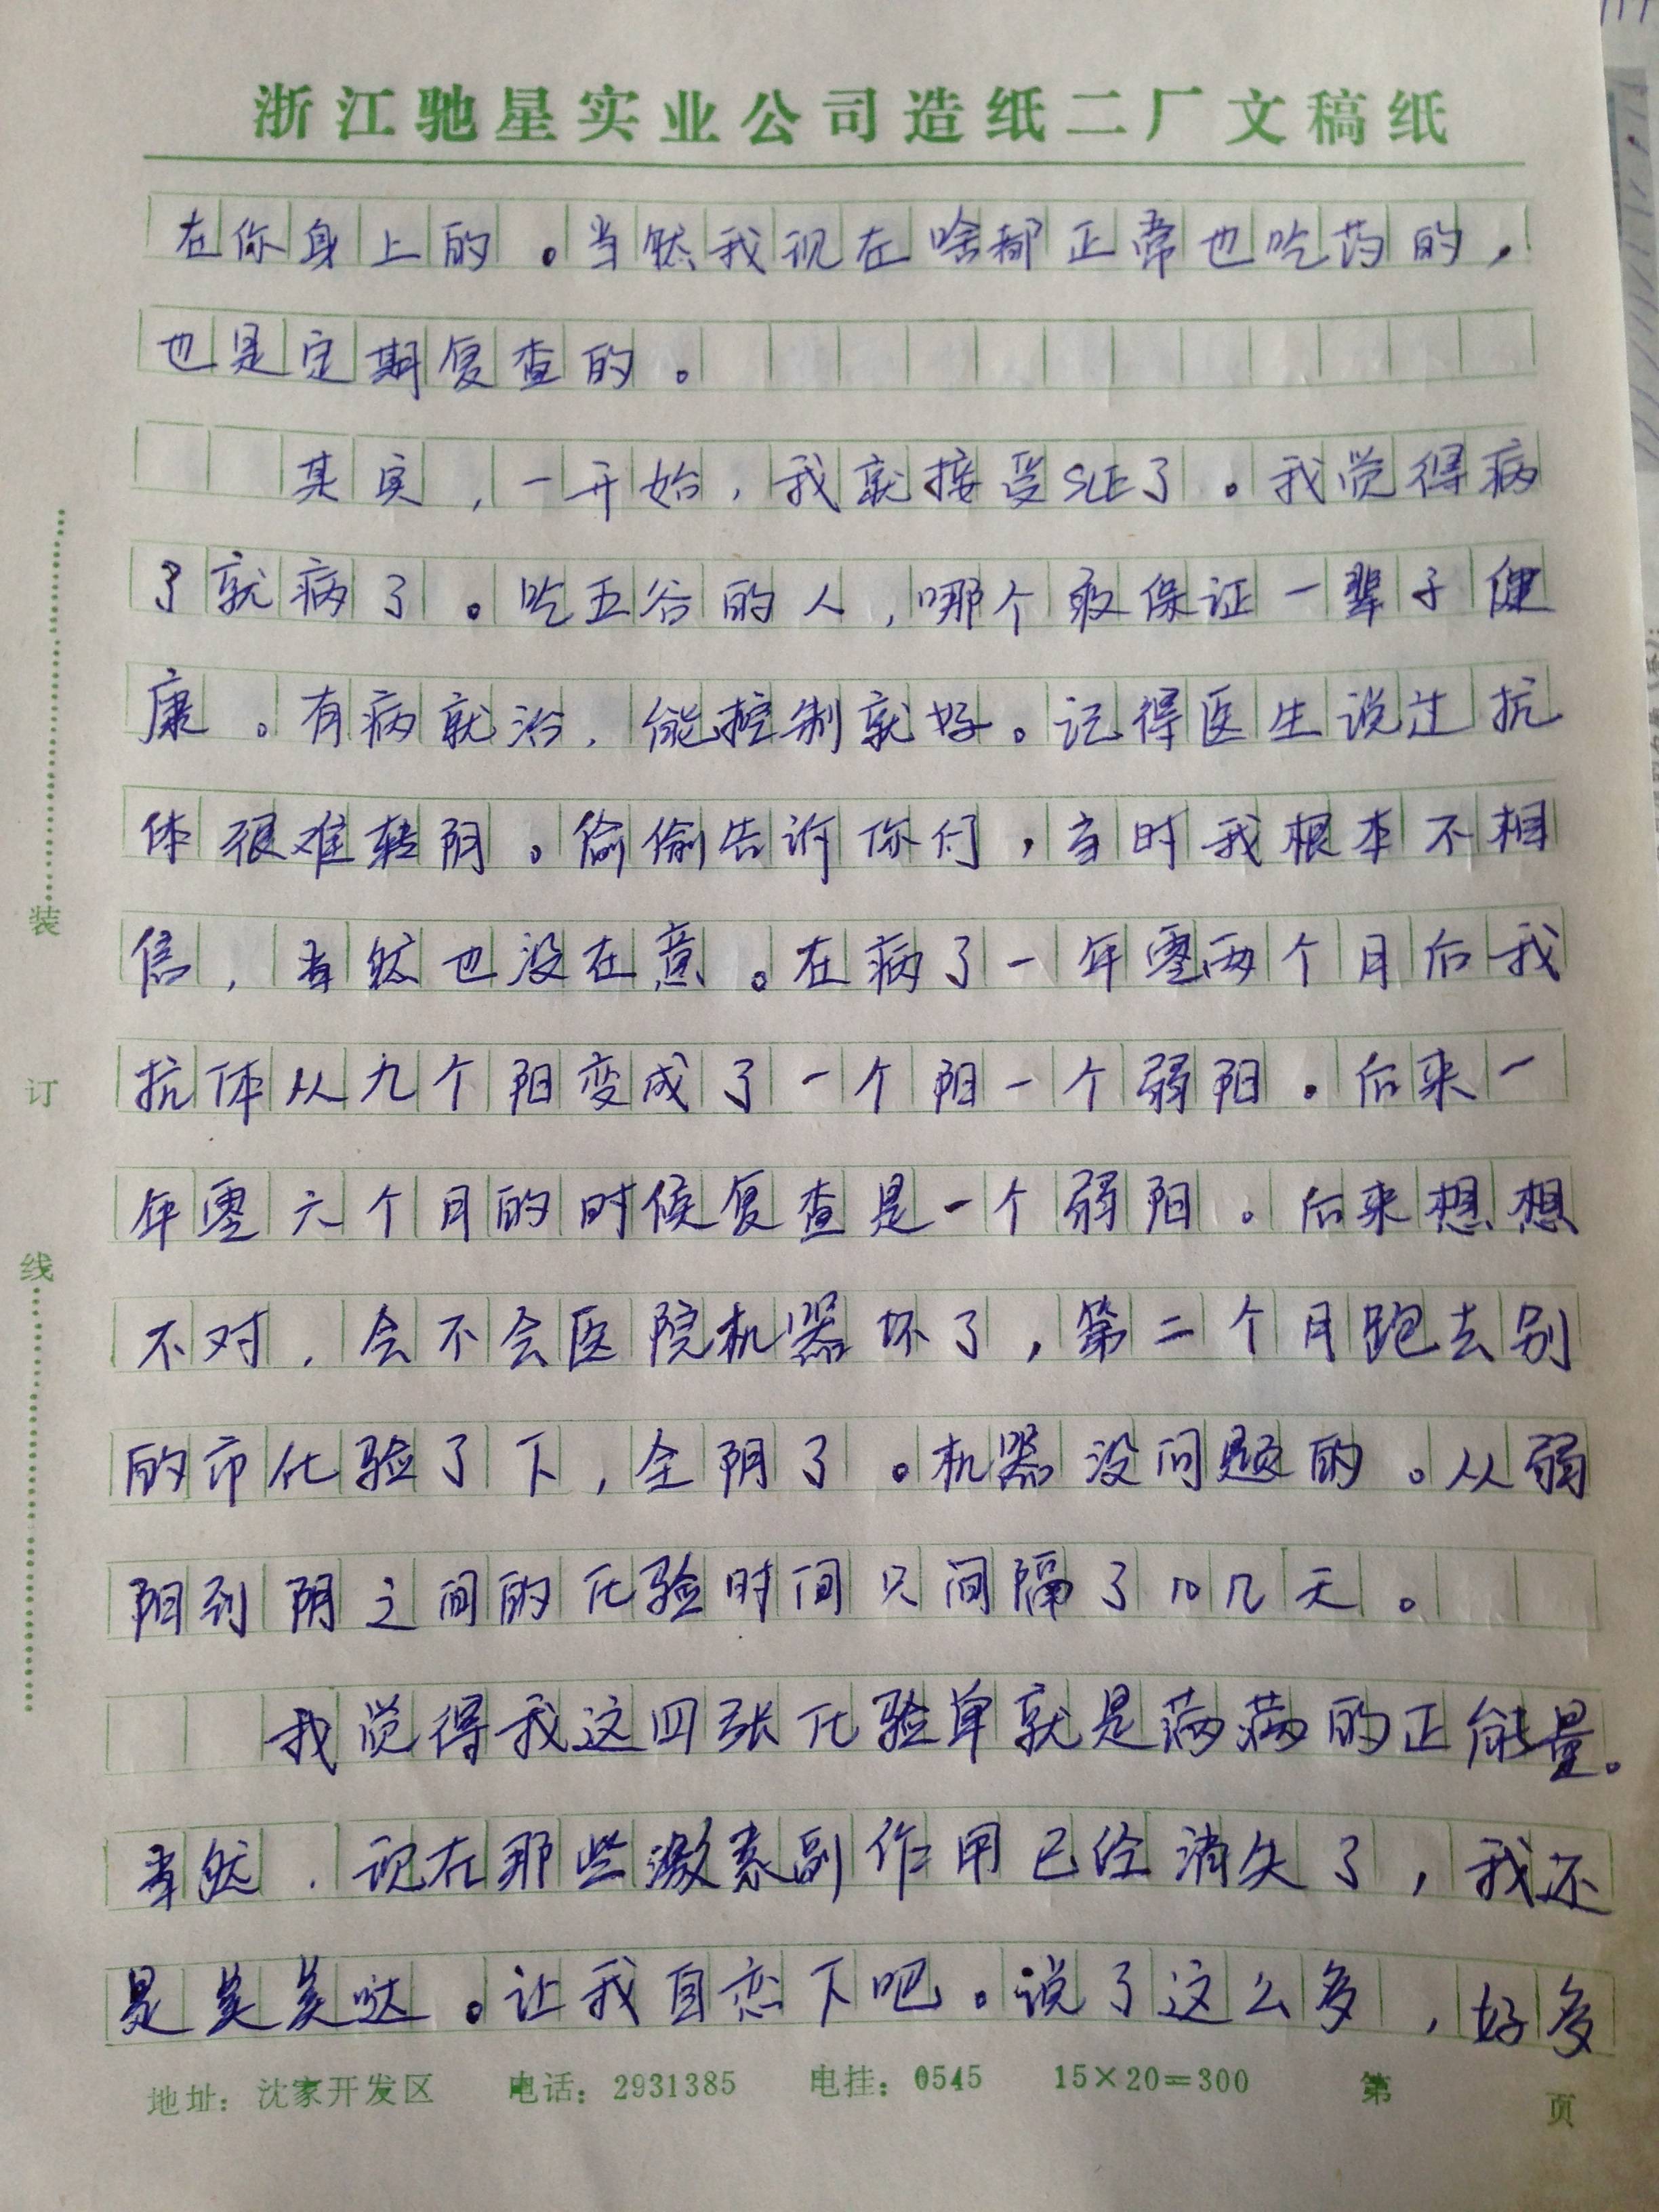 浙江驰星实业公司造纸二厂文稿纸
在你身上的。当然我现在啥都正常也吃药的，
也是定期复查的。
其实，一开始，我就接受SLE了。我觉得病
了就病了。吃五谷的人，哪个敢保证一辈子健
康。有病就治，能控制就好。记得医生说过抗
体很难转阴。偷偷告诉你们，当时我根本不相
信，当然也没在意。在病了一年零两个月后我
抗体从九个阳变成了一个阳一个弱阳。后来一
年零六个月的时候复查是一个弱阳。后来想想
不对，会不会医院机器坏了，第二个月跑去别
的市化验了下，全阴了。机器没问题的。从弱
阳到阴之间的化验时间只间隔了10几天。
我觉得我这四张化验单就是满满的正能量。
当然，现在那些激素副作用已经消失了，我还
是美美哒。让我自恋下吧。说了这么多，好多
装
订
线
地址：沈家开发区 电话：2931385 电挂：0545 15×20＝300 第 页